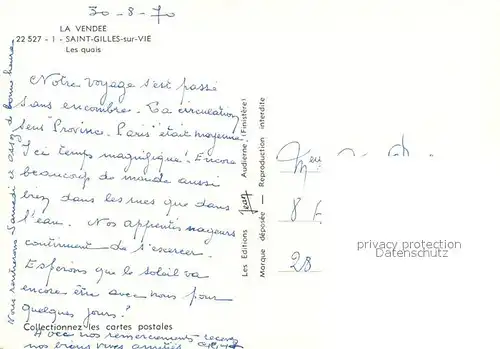 30-8-70
LA VENDEE
22 527 - 1 - SAINT-GILLES-sur-VIE
Les quais
Notre voyage s'est passé
sans encombre. La circulation
sens Province. Paris était moyenne.
Ici temps magnifique! Encore
beaucoup de monde aussi
bien dans les rues que dans
l'eau. Nos apprentis nageurs
continuent de s'exercer.
Espérons que le soleil va
encore être avec nous pour
quelques jours!
Collectionnez les cartes postales
Avec nos remerciements recevez
nos bonnes amitiés
Nous rentrerons Samedi et assez de bonne heure
Les Editions Jean Audierne (Finistère)
Marque déposée — Reproduction interdite
8
28
privacy protection
Datenschutz